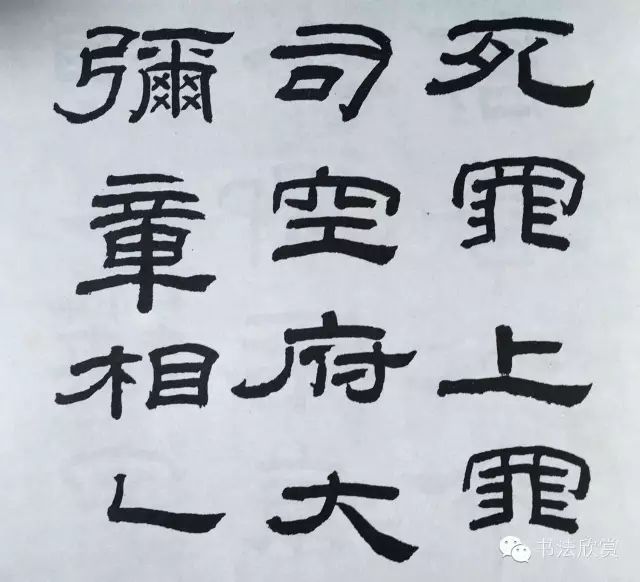 死罪上罪
司空府大
彌章相
书法欣赏